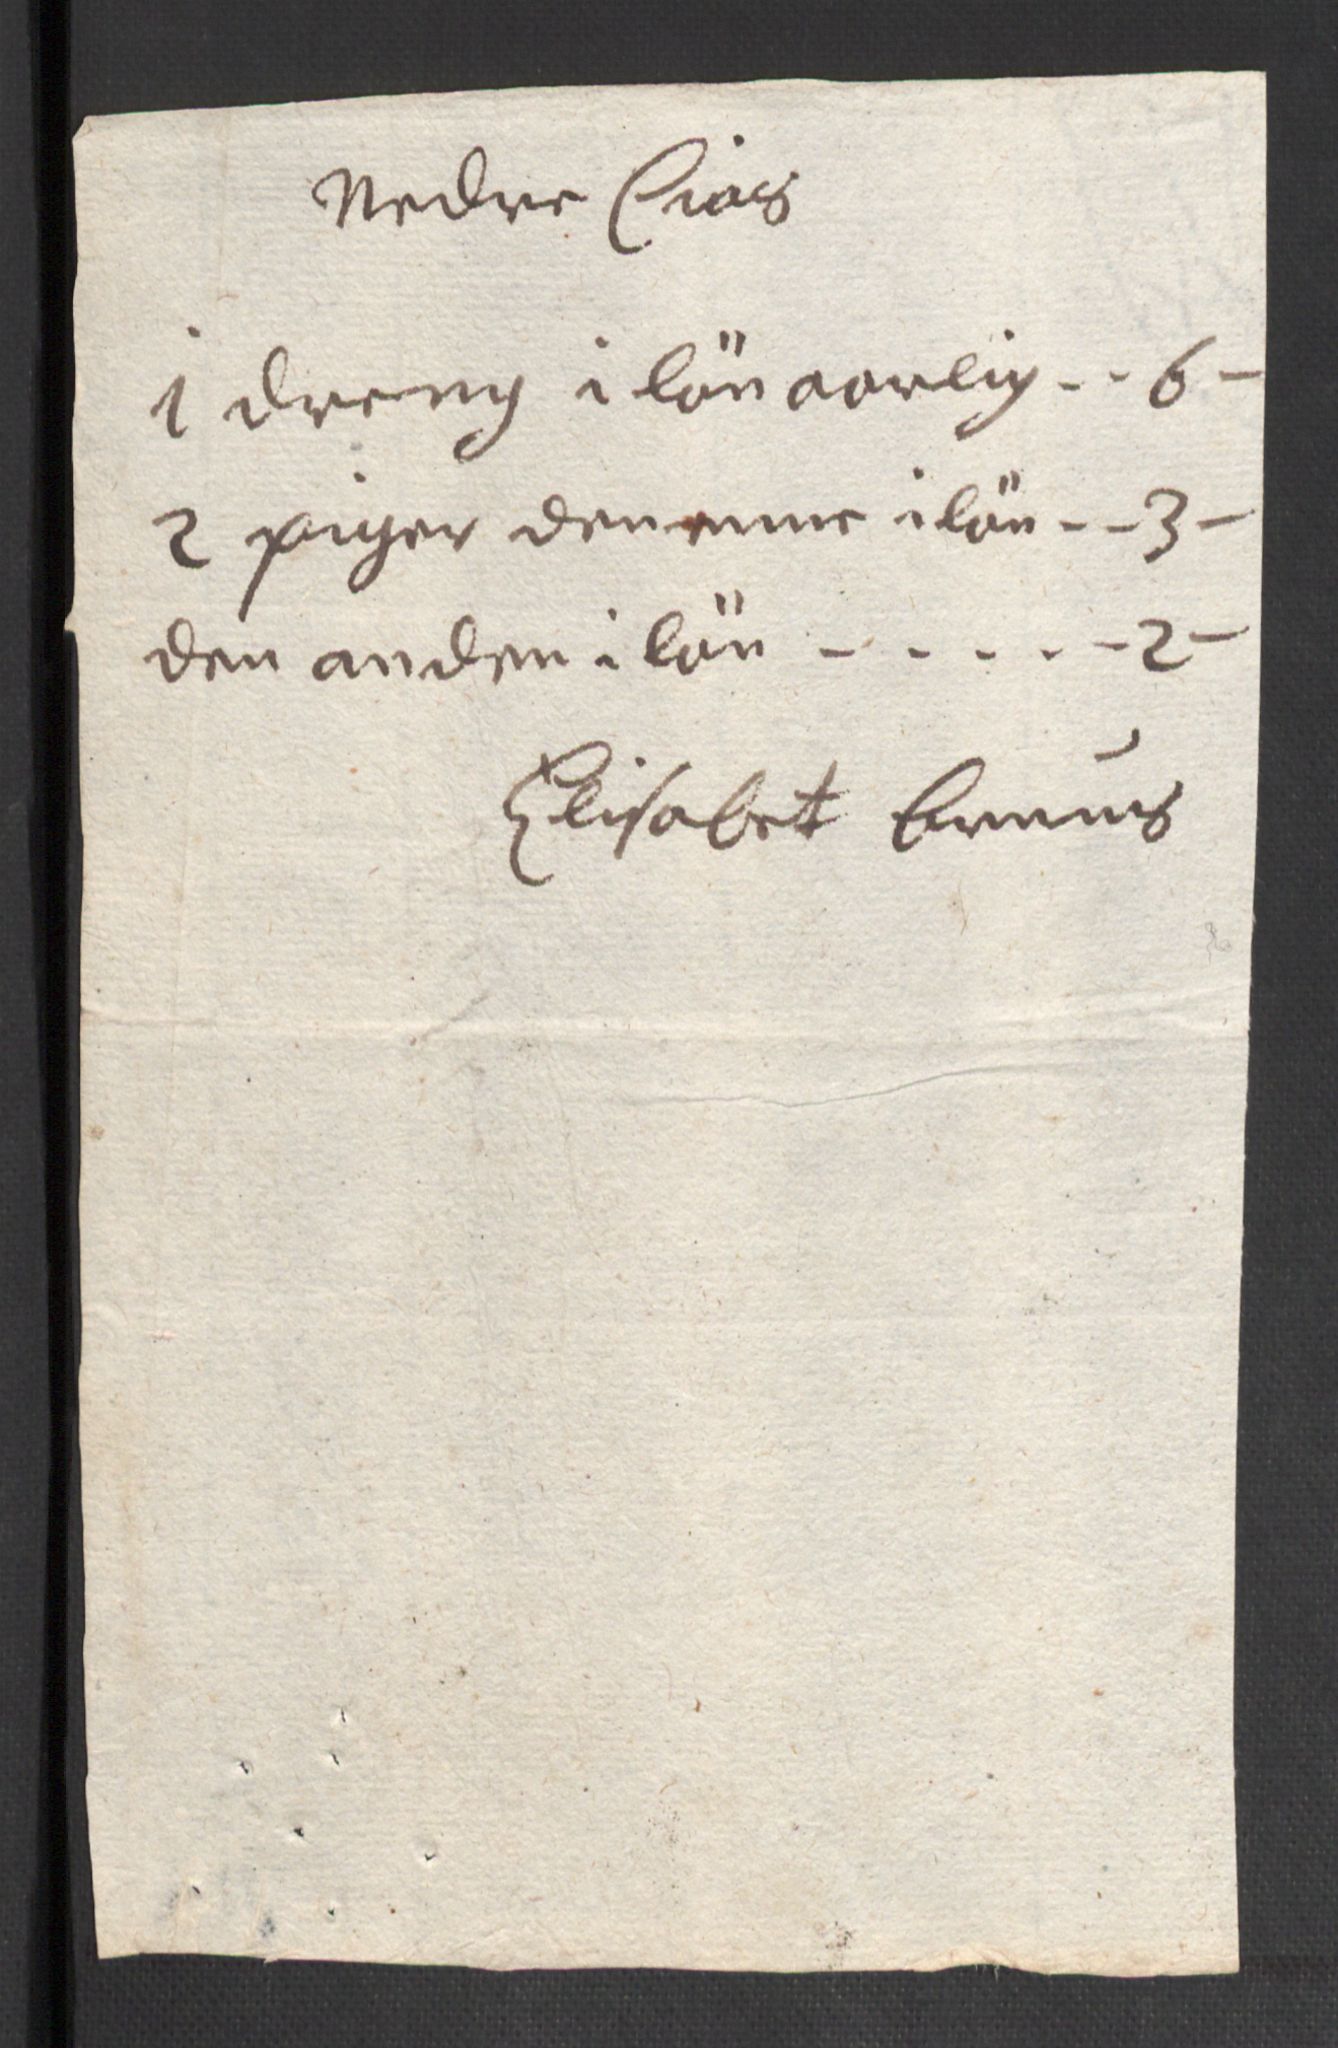 Nedre
1 dreng i lön aarlig - - 6 -
2 piger den enne i lön - - 3 -
den anden i lön - - - - - 2 -
Elisabet